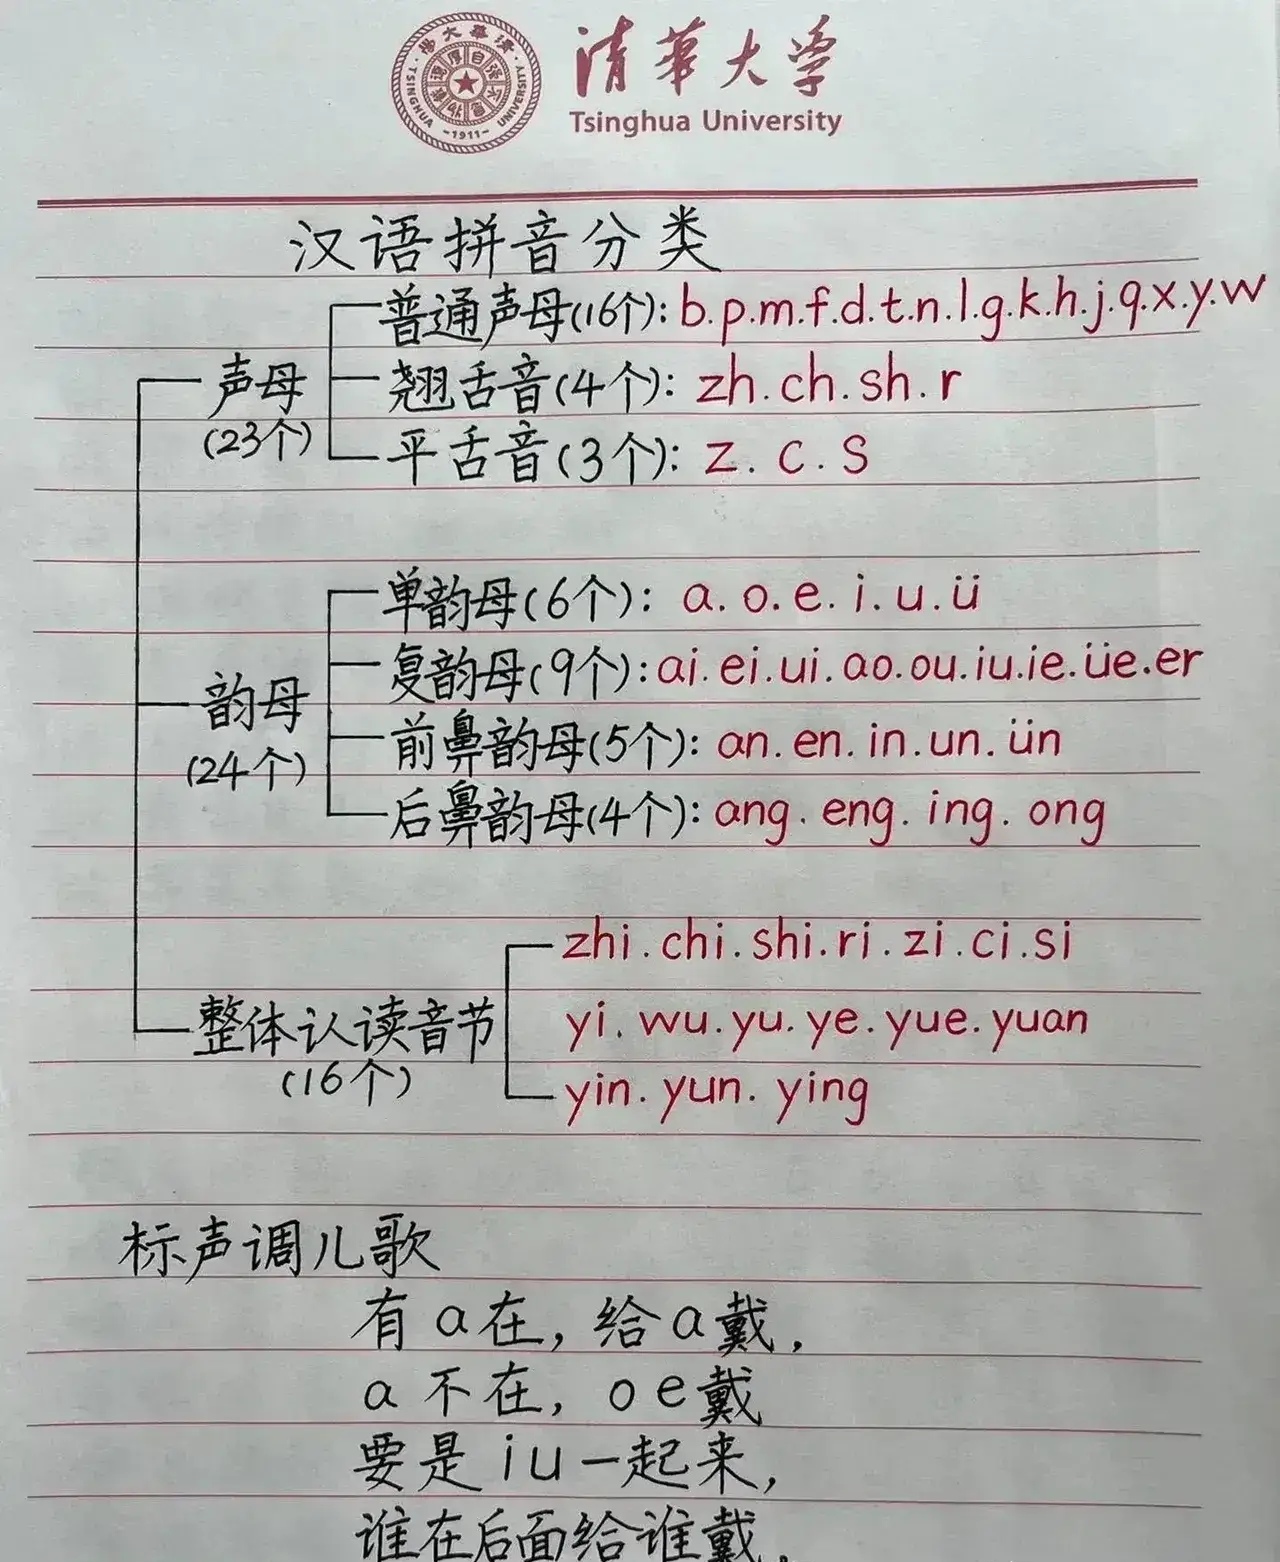 清華大学
Tsinghua University
TSINGHUA UNIVERSITY
-1911-
汉语拼音分类
声母
(23个)
普通声母(16个): b.p.m.f.d.t.n.l.g.k.h.j.q.x.y.w
翘舌音(4个): zh.ch.sh.r
平舌音(3个): z.c.s
韵母
(24个)
单韵母(6个): a.o.e.i.u.ü
复韵母(9个): ai.ei.ui.ao.ou.iu.ie.üe.er
前鼻韵母(5个): an.en.in.un.ün
后鼻韵母(4个): ang.eng.ing.ong
整体认读音节
(16个)
zhi.chi.shi.ri.zi.ci.si
yi.wu.yu.ye.yue.yuan
yin.yun.ying
标声调儿歌
有a在，给a戴，
a不在，oe戴
要是iu一起来，
谁在后面给谁戴。